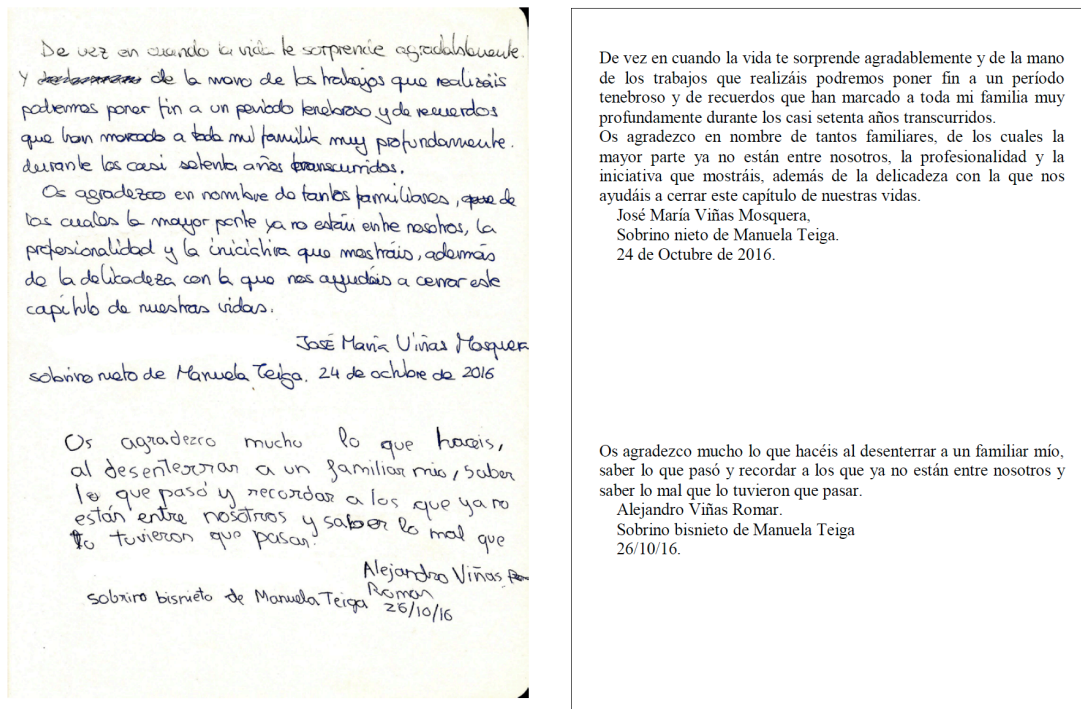 De vez en cuando la vida te sorprende agradablemente.
Y de la mano de los trabajos que realizáis
podremos poner fin a un período tenebroso y de recuerdos
que han marcado a toda mi familia muy profundamente.
durante los casi setenta años transcurridos.
Os agradezco en nombre de tantos familiares, de
los cuales la mayor parte ya no están entre nosotros, la
profesionalidad y la iniciativa que mostráis, además
de la delicadeza con la que nos ayudáis a cerrar este
capítulo de nuestras vidas.
José María Viñas Mosquera
sobrino nieto de Manuela Teiga. 24 de octubre de 2016
Os agradezco mucho lo que haceis,
al desenterrar a un familiar mío, saber
lo que pasó y recordar a los que ya no
están entre nosotros y saber lo mal que
lo tuvieron que pasar.
Alejandro Viñas
Romar
sobrino bisnieto de Manuela Teiga 26/10/16
De vez en cuando la vida te sorprende agradablemente y de la mano
de los trabajos que realizáis podremos poner fin a un período
tenebroso y de recuerdos que han marcado a toda mi familia muy
profundamente durante los casi setenta años transcurridos.
Os agradezco en nombre de tantos familiares, de los cuales la
mayor parte ya no están entre nosotros, la profesionalidad y la
iniciativa que mostráis, además de la delicadeza con la que nos
ayudáis a cerrar este capítulo de nuestras vidas.
José María Viñas Mosquera,
Sobrino nieto de Manuela Teiga.
24 de Octubre de 2016.
Os agradezco mucho lo que hacéis al desenterrar a un familiar mío,
saber lo que pasó y recordar a los que ya no están entre nosotros y
saber lo mal que lo tuvieron que pasar.
Alejandro Viñas Romar.
Sobrino bisnieto de Manuela Teiga
26/10/16.